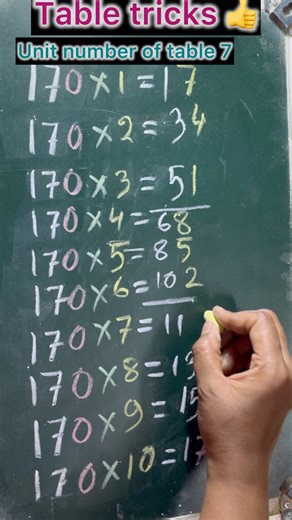 Table tricks 👍
Unit number of table 7
170×1=17
170×2=34
170×3=51
170×4=68
170×5=85
170×6=102
170×7=11
170×8=13
170×9=15
170×10=17